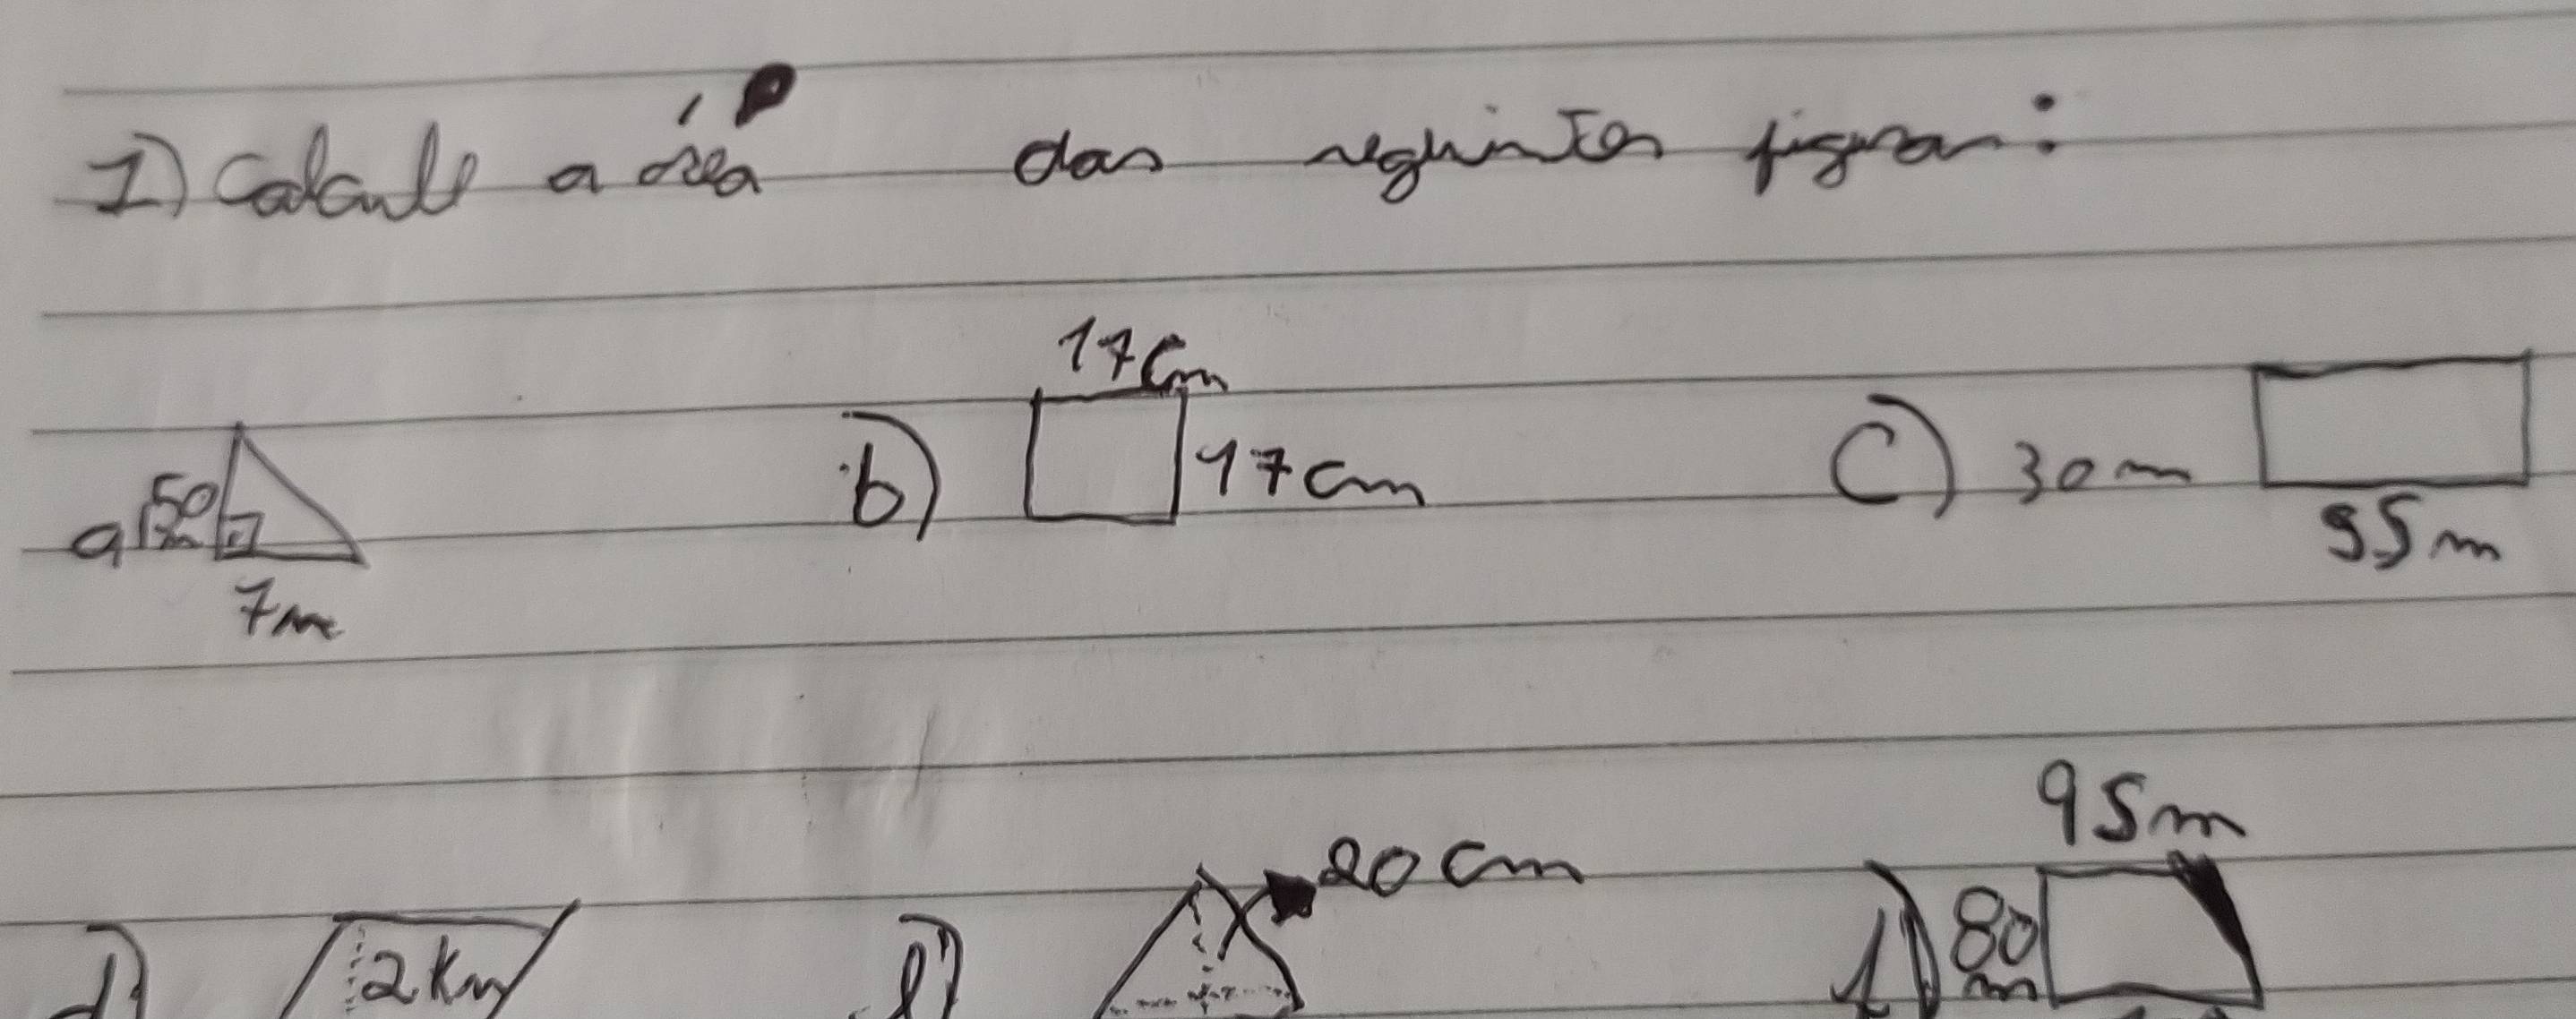 1) Calcule a área das seguintes figuras:
a) 50 m
7m
b) 17cm
17cm
c) 30m
95m
d) 2Km
e) 20cm
f) 95m
80 m